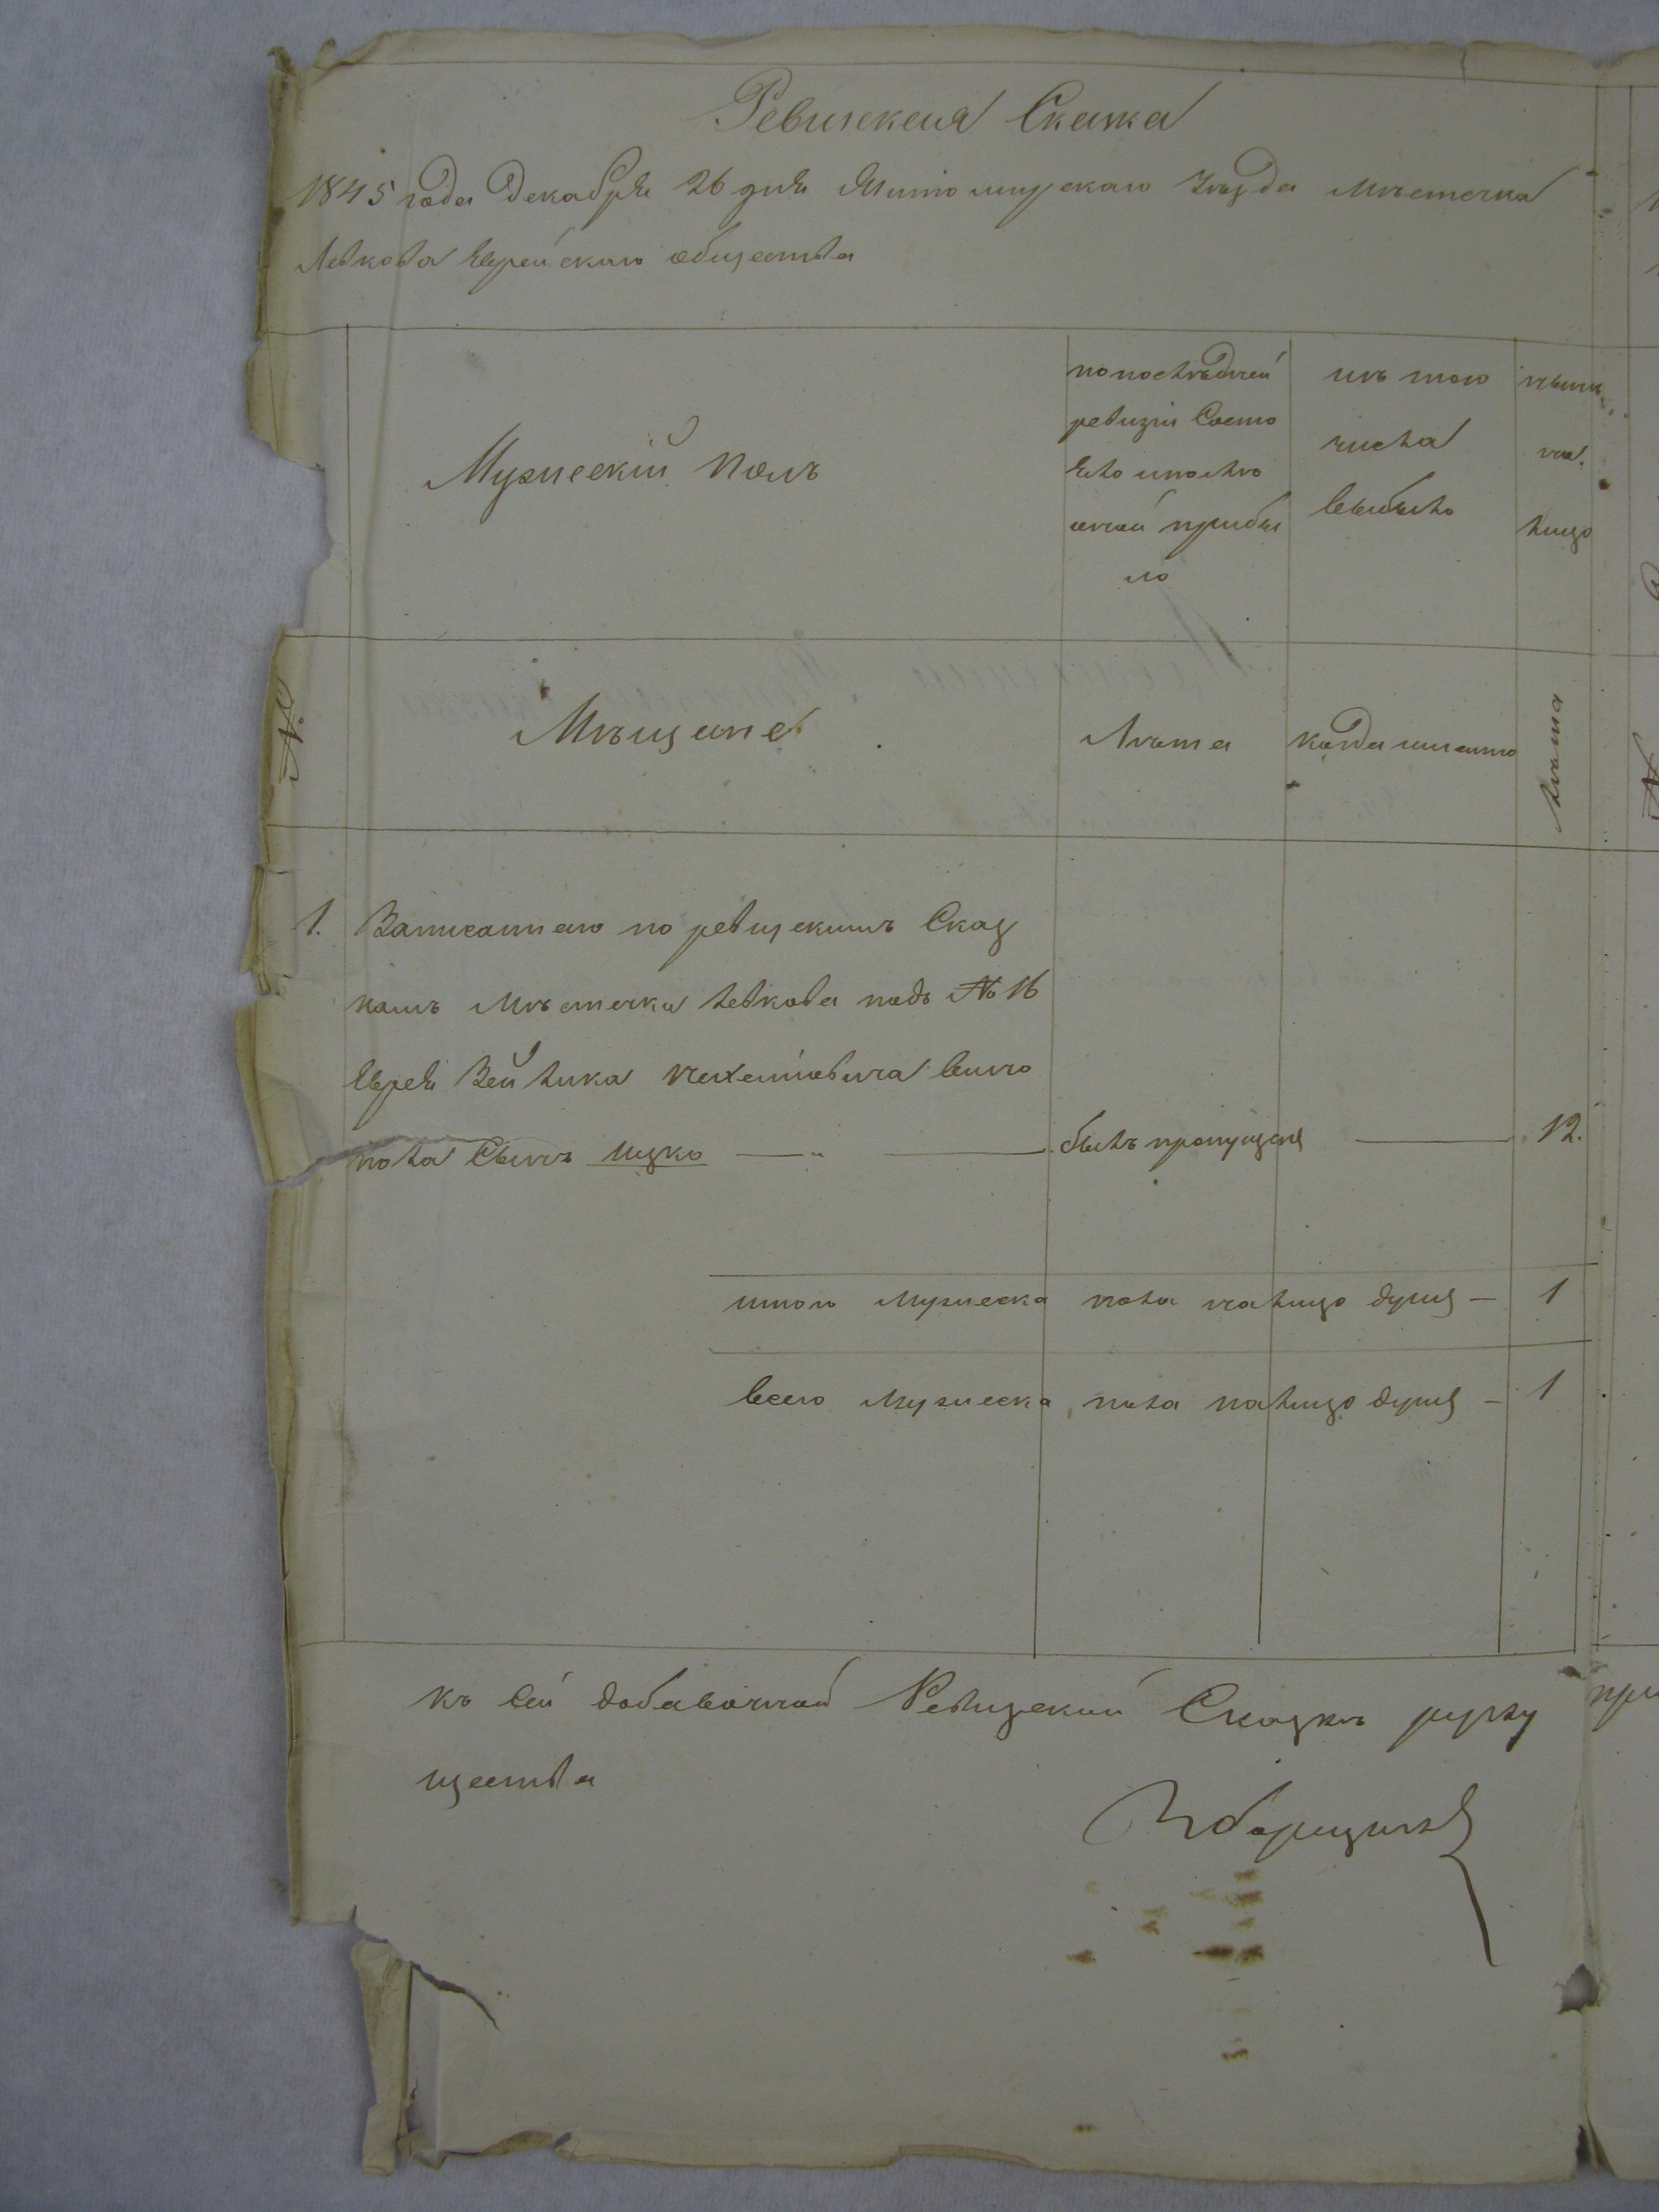 Ревизская Сказка
1845 года Декабря 26 дня Житомирскаго уезда Мѣстечка
Левкова Еврейскаго общества
Мужеский полъ
по последней
ревизии Состо
яло и после
оной прибы
ло
изъ того
числа
выбыло
ныне
на
лицо
№
Мѣщане
Лѣта
когда имянно
Лѣта
№
1. Записаннаго по ревизскимъ Сказ
камъ Мѣстечка Левкова подъ № 16
Еврея Зейлика
пола Сынъ Ицко — " — былъ пропущенъ — 12.
итого Мужеска пола на лицо душъ — 1
Всего Мужеска пола на лицо душъ — 1
къ Сей добавочной Ревизской Сказкѣ руку при
щества